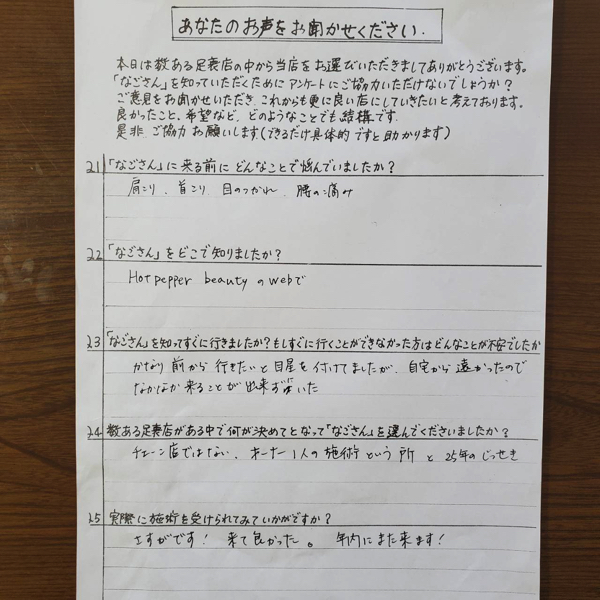 あなたのお声をお聞かせください.
本日は数ある足裏店の中から当店をお選びいただきましてありがとうございます。
「なごさん」を知っていただくためにアンケートにご協力いただけないでしょうか?
ご意見をお聞かせいただき これからも更に良い店にしていきたいと考えております。
良かったこと、希望など、どのようなことでも結構です
是非 ご協力 お願いします(できるだけ具体的ですと助かります)
21 「なごさん」に来る前にどんなことで悩んでいましたか?
肩こり、首こり 目のつかれ 腰の痛み
22 「なごさん」をどこで知りましたか?
Hot pepper beauty のWebで
23 「なごさん」を知ってすぐに行きましたか?もしすぐに行くことができなかった方はどんなことが不安でしたか
かなり前から行きたいと目星を付けてましたが、自宅から遠かったので
なかなか来ることが出来ず
24 数ある足裏店がある中で何が決めてとなって「なごさん」を選んでくださいましたか?
チェーン店ではない、オーナー1人の施術という所 と 25年のじっせき
25 実際に施術を受けられてみていかがですか?
さすがです! 来て良かった。 年内にまた来ます!